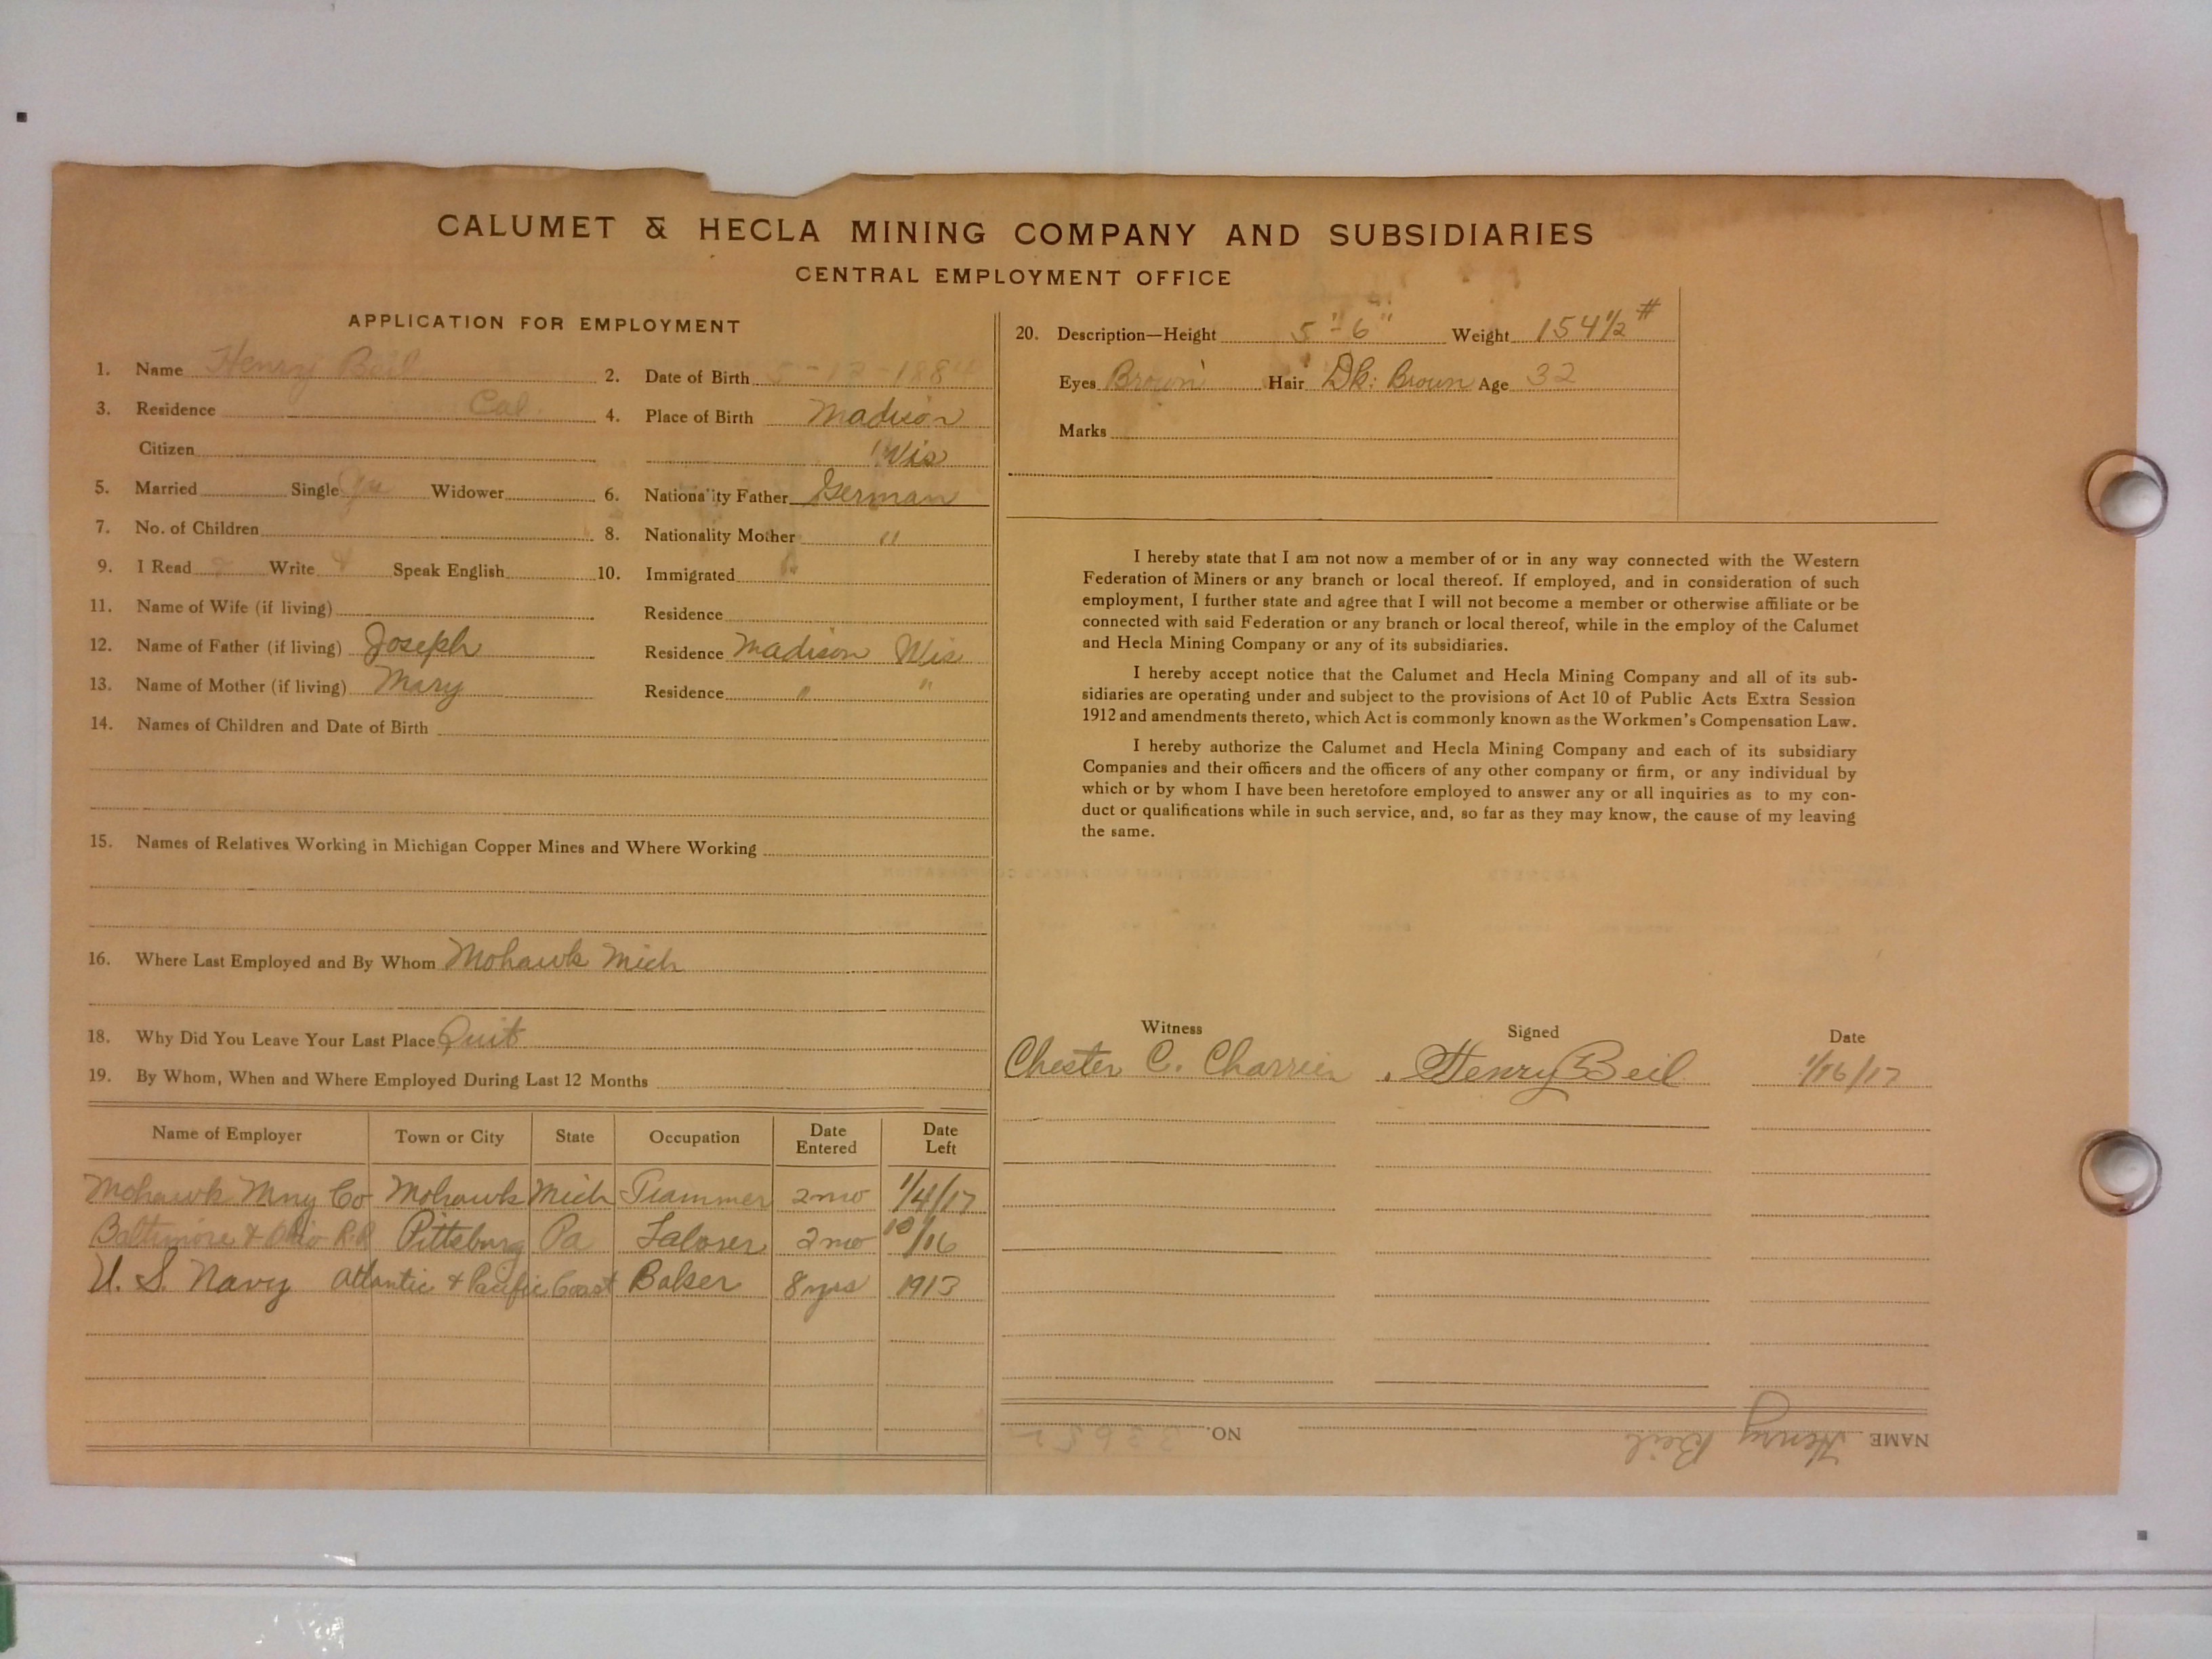 CALUMET & HECLA MINING COMPANY AND SUBSIDIARIES
CENTRAL EMPLOYMENT OFFICE
APPLICATION FOR EMPLOYMENT
1. Name Henry 2. Date of Birth 5-12-1884
3. Residence Cal. 4. Place of Birth Madison
Citizen Wis
5. Married Single Widower 6. Nationality Father German
7. No. of Children 8. Nationality Mother "
9. I Read Write Speak English 10. Immigrated
11. Name of Wife (if living) Residence
12. Name of Father (if living) Joseph Residence Madison Wis
13. Name of Mother (if living) Mary Residence " "
14. Names of Children and Date of Birth
15. Names of Relatives Working in Michigan Copper Mines and Where Working
16. Where Last Employed and By Whom Mohawk Mich
18. Why Did You Leave Your Last Place Quit
19. By Whom, When and Where Employed During Last 12 Months
Name of Employer Town or City State Occupation Date Entered Date Left
Mohawk Mng Co Mohawk Mich Trammer 2 mo 1/4/17
Baltimore & Ohio R.R Pittsburg Pa Laborer 2 mo 10/16
U. S. Navy Atlantic & Pacific Coast Baker 8 yrs 1913
20. Description—Height 5"-6" Weight 154 1/2 #
Eyes Brown Hair Dk. Brown Age 32
Marks
I hereby state that I am not now a member of or in any way connected with the Western
Federation of Miners or any branch or local thereof. If employed, and in consideration of such
employment, I further state and agree that I will not become a member or otherwise affiliate or be
connected with said Federation or any branch or local thereof, while in the employ of the Calumet
and Hecla Mining Company or any of its subsidiaries.
I hereby accept notice that the Calumet and Hecla Mining Company and all of its sub-
sidiaries are operating under and subject to the provisions of Act 10 of Public Acts Extra Session
1912 and amendments thereto, which Act is commonly known as the Workmen's Compensation Law.
I hereby authorize the Calumet and Hecla Mining Company and each of its subsidiary
Companies and their officers and the officers of any other company or firm, or any individual by
which or by whom I have been heretofore employed to answer any or all inquiries as to my con-
duct or qualifications while in such service, and, so far as they may know, the cause of my leaving
the same.
Witness Signed Date
Chester C. Henry Beil 1/16/17
NAME Henry Beil NO.